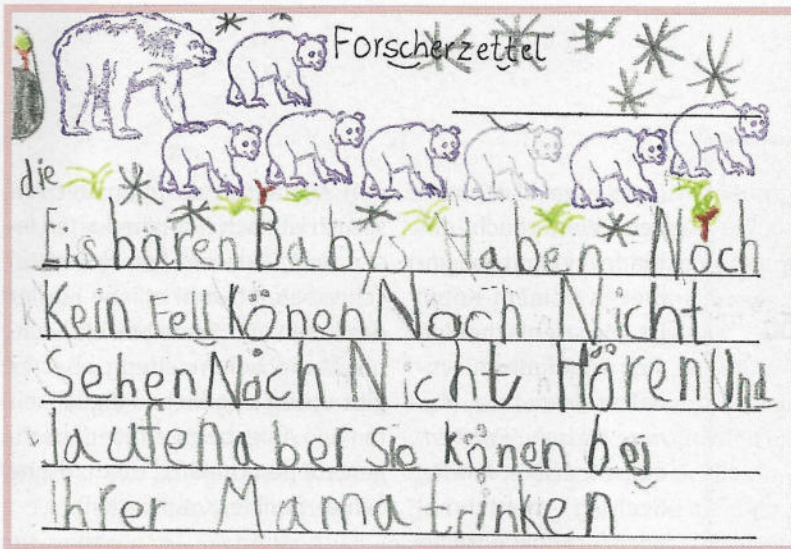 Forscherzettel
die
Eisbären Babys haben Noch
Kein Fell Könen Noch Nicht
Sehen Noch Nicht Hören Und
laufen aber Sie könen bei
Ihrer Mama trinken